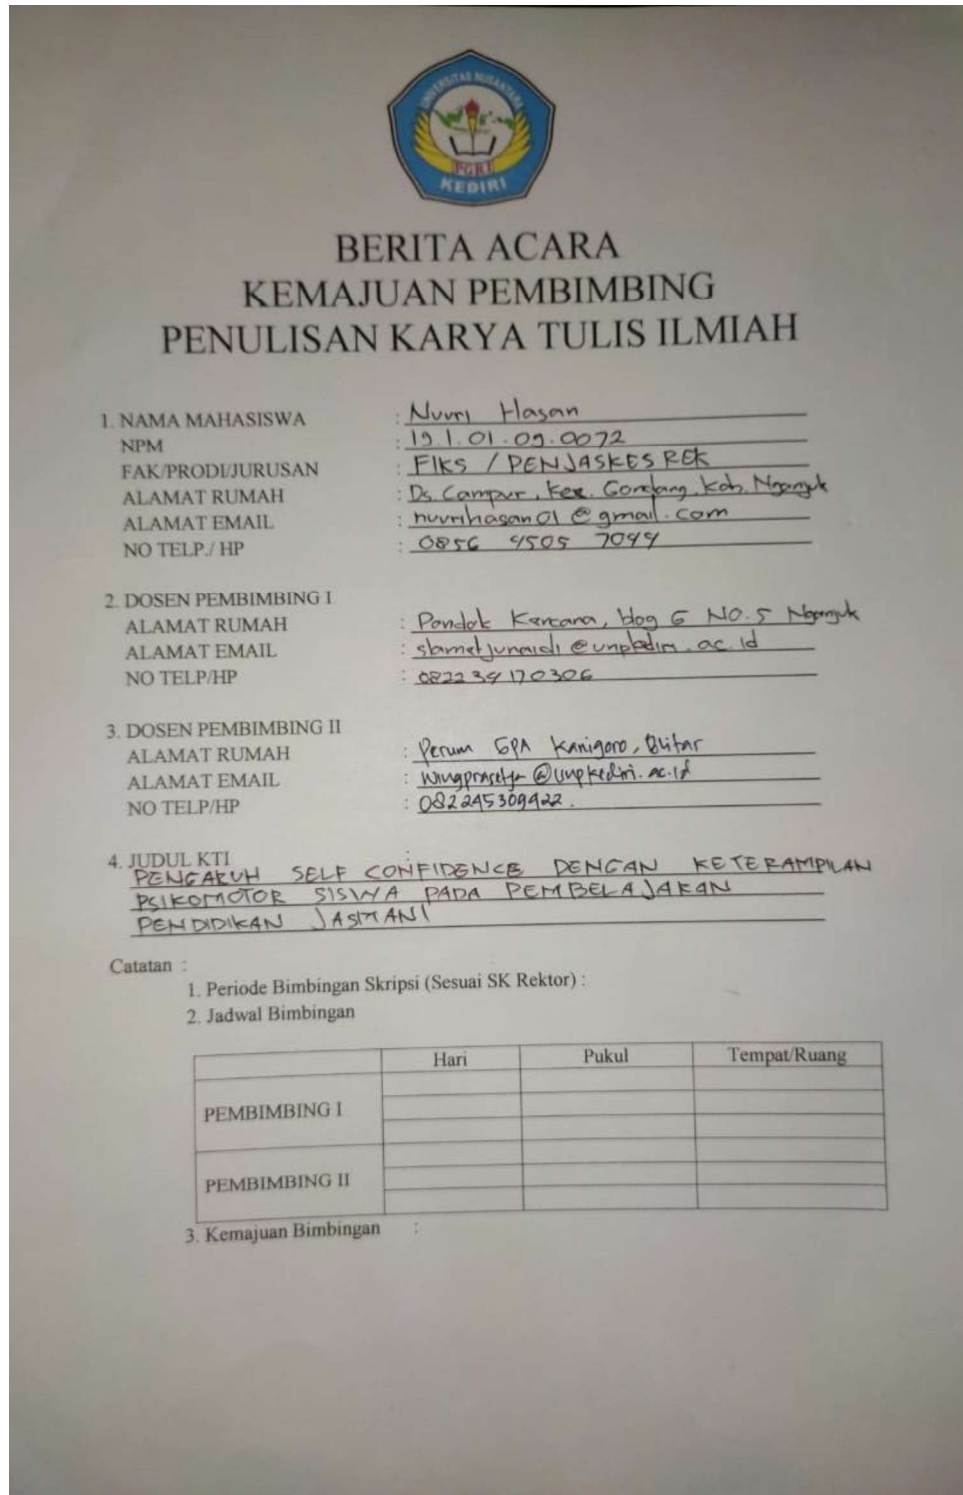 UNIVERSITAS NUSANTARA
PGRI
KEDIRI
BERITA ACARA
KEMAJUAN PEMBIMBING
PENULISAN KARYA TULIS ILMIAH
1. NAMA MAHASISWA : Nuvri Hasan
NPM : 19.1.01.09.0072
FAK/PRODI/JURUSAN : FIKS / PENJASKESREK
ALAMAT RUMAH : Ds. Campur, Kec. Gondang, Kab. Nganjuk
ALAMAT EMAIL : nuvrihasan01@gmail.com
NO TELP./ HP : 0856 4505 7044
2. DOSEN PEMBIMBING I
ALAMAT RUMAH : Pondok Kencana, blog G NO.5 Nganjuk
ALAMAT EMAIL : slametjunaidi@unpkediri.ac.id
NO TELP/HP : 082234170306
3. DOSEN PEMBIMBING II
ALAMAT RUMAH : Perum GPA Kanigoro, Blitar
ALAMAT EMAIL : wingprasetya@unpkediri.ac.id
NO TELP/HP : 082245309422.
4. JUDUL KTI :
PENGARUH SELF CONFIDENCE DENGAN KETERAMPILAN
PSIKOMOTOR SISWA PADA PEMBELAJARAN
PENDIDIKAN JASMANI
Catatan :
1. Periode Bimbingan Skripsi (Sesuai SK Rektor) :
2. Jadwal Bimbingan
Hari Pukul Tempat/Ruang
PEMBIMBING I
PEMBIMBING II
3. Kemajuan Bimbingan :